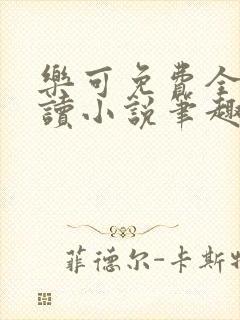 樂可免費全
讀小說筆趣
菲德尔-卡斯特